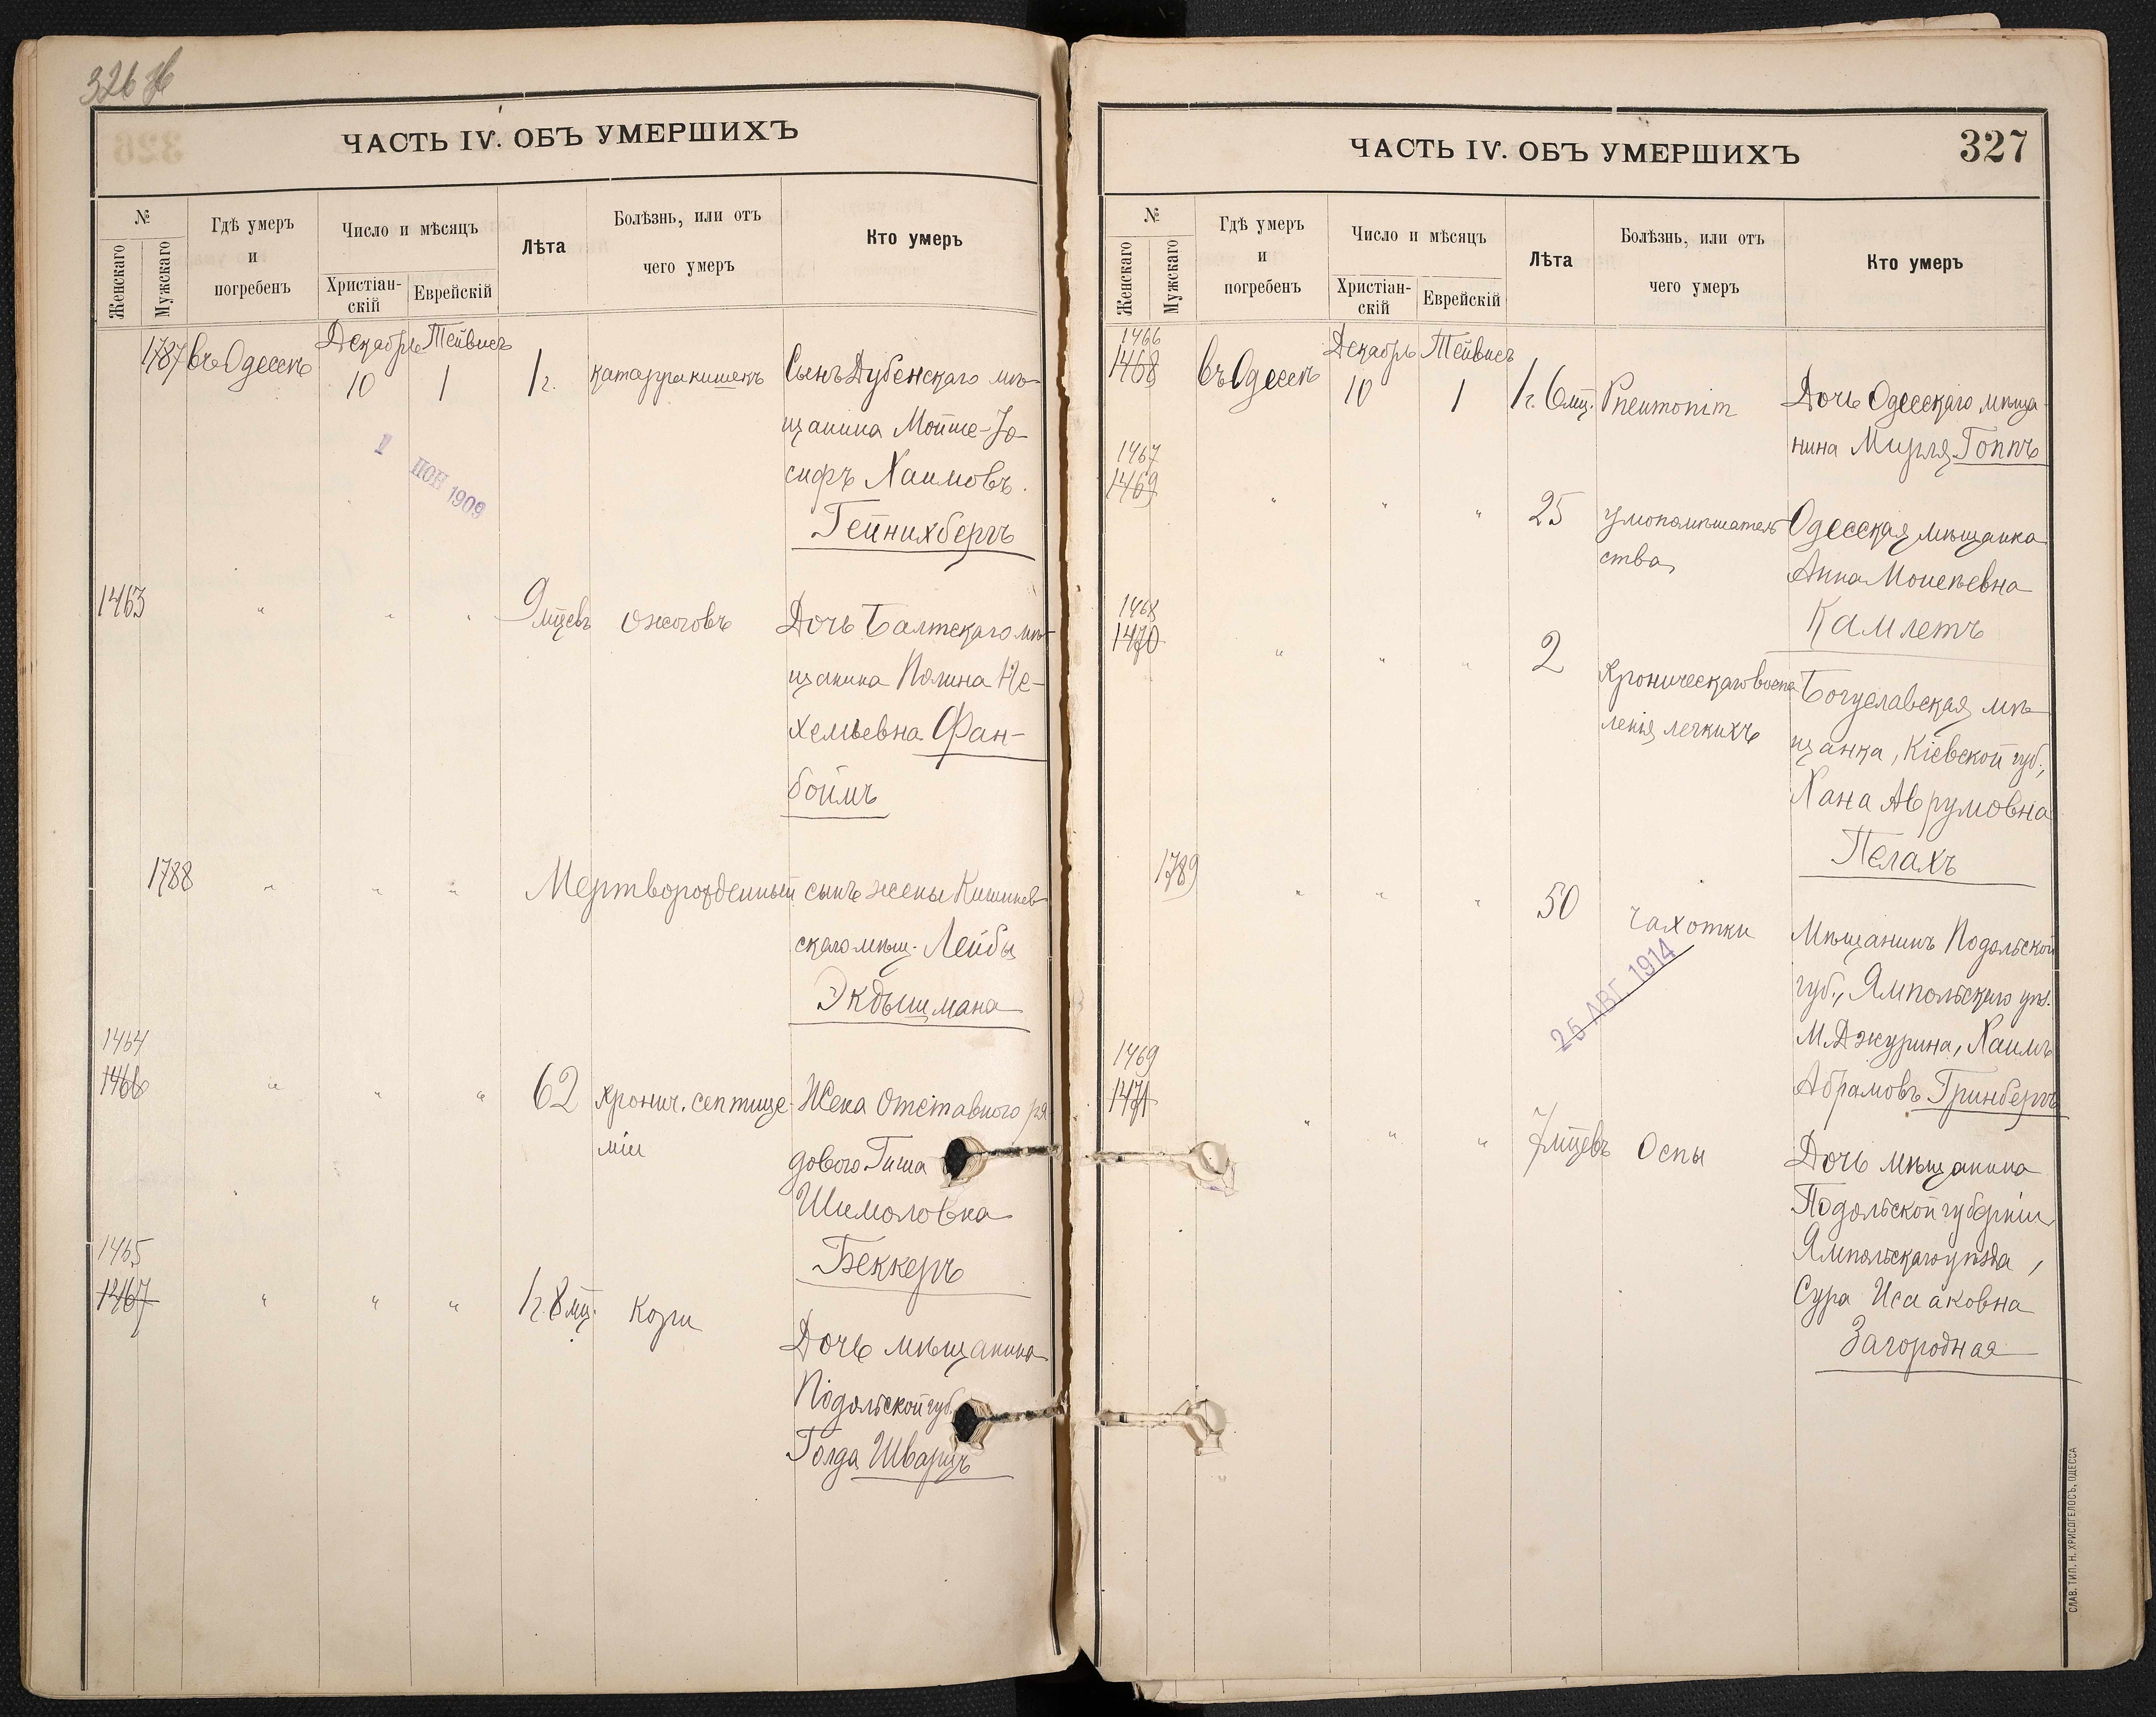 326 об
ЧАСТЬ IV. ОБЪ УМЕРШИХЪ
№
Женскаго
Мужскаго
Гдѣ умеръ
и
погребенъ
Число и мѣсяцъ
Христіан-
скій
Еврейскій
Лѣта
Болѣзнь, или отъ
чего умеръ
Кто умеръ
Декабрь Тейвисъ
1787 въ Одессѣ 10 1 1 г. катарра кишекъ Сынъ Дубенскаго мѣ-
щанина Мойше-Іо-
сифъ Хаимовъ
Гейнихбергъ
1 ІЮН 1909
1463 " " " 9 мѣцевъ Ожоговъ Дочь Балтскаго мѣ-
щанина Полина Не-
хемьевна Фан-
боймъ
1788 " " " Мертворожденный сынъ жены Кишинев-
скаго мѣщ. Лейбы
Экдышмана
1464
1466 " " " 62 хронич. септице- Жена Отставного ря-
міи
дового Гиша
Шимоловна
Беккеръ
1465
1467 " " " 1 г. 8 мц. Кори
Дочь мѣщанина
Подольской губ.
Голда Шварцъ
ЧАСТЬ IV. ОБЪ УМЕРШИХЪ
327
№
Женскаго
Мужскаго
Гдѣ умеръ
и
погребенъ
Число и мѣсяцъ
Христіан-
скій
Еврейскій
Лѣта
Болѣзнь, или отъ
чего умеръ
Кто умеръ
1466 Декабрь Тейвисъ
1468 въ Одессѣ 10 1 1 г. 6 мц. Pneumoniт Дочь Одесскаго мѣща-
нина Мирля Гоппъ
1467
1469 " " " 25 умопомѣшатель- Одесская мѣщанка
ства
Анна Моисеевна
Камлетъ
1468
1470 " " " 2 хроническаго воспа- Богуславская мѣ-
ленія легкихъ
щанка, Кіевской губ.,
Хана Аврумовна
Пелахъ
1789 " " " 50 Чахотки Мѣщанинъ Подольской
губ., Ямпольскаго уѣз.
М. Джурина, Хаимъ
Абрамовъ Гринбергъ
25 АВГ 1914
1469
1471 " " " 7 мѣцевъ Оспы Дочь мѣщанина
Подольской губерніи
Ямпольскаго уѣзда,
Сура Исааковна
Загородная
СЛАВ. ТИП. Н. ХРИСОГЕЛОСЪ, ОДЕССА